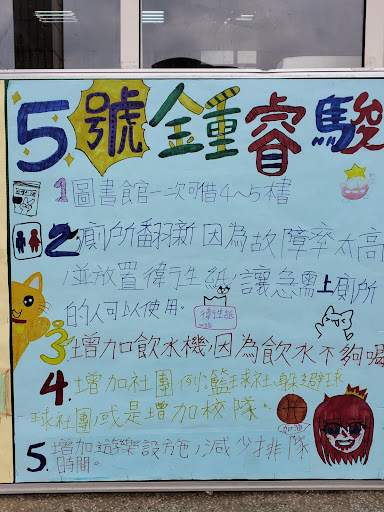 5號鍾睿駿
1圖書館一次可借4~5樓
2廁所翻新因為故障率太高
,並放置衛生紙,讓急需上廁所
的人可以使用。
衛生紙
3增加飲水機,因為飲水不夠喝
4.增加社團例:籃球社,躲避球
球社團,或是增加校隊。
加油
5.增加遊樂設施,減少排隊
時間。